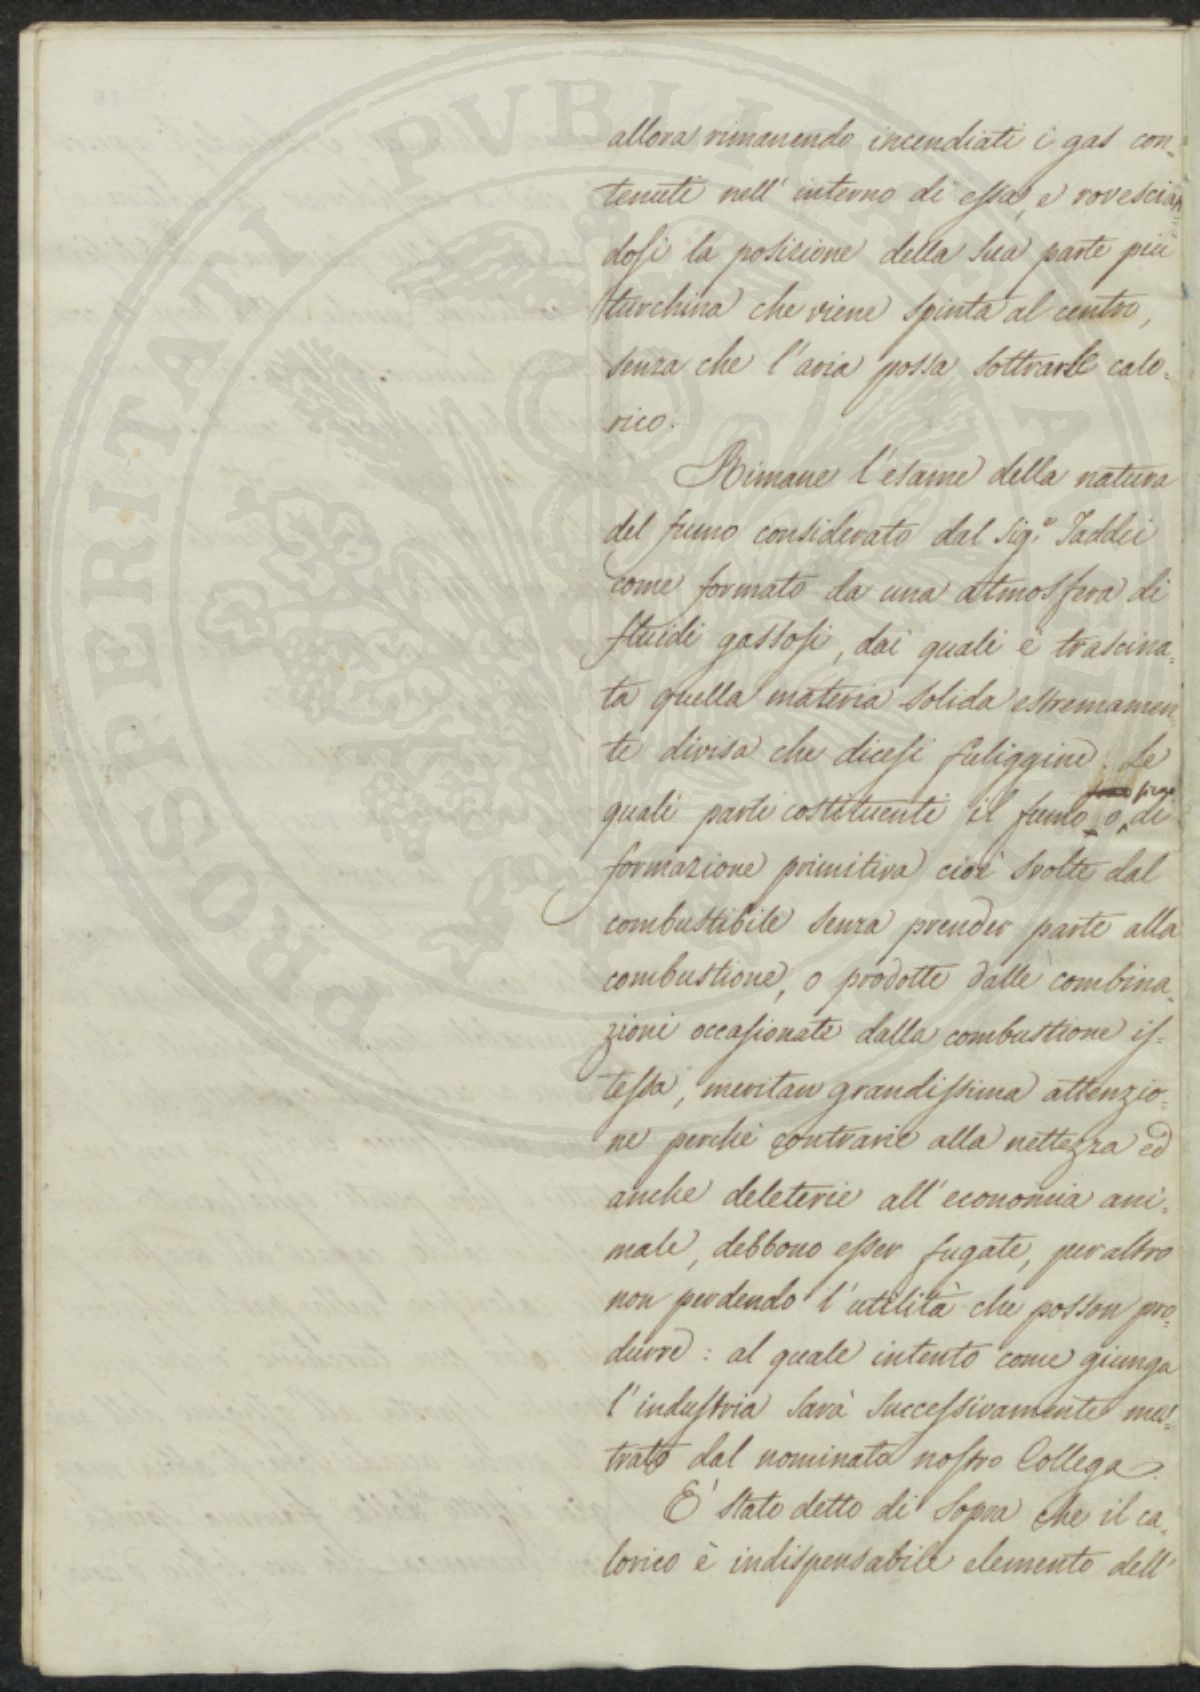 PROSPERITATI PVBLICAE
allora rimanendo incendiati i gas con=
tenuti nell' interno di essa, e rovescian
dosi la posizione della sua parte più
turchina che viene spinta al centro,
senza che l'aria possa sottrarle calo=
rico.
Rimane l'esame della natura
del fumo considerato dal Sig.r Taddei
come formato da una atmosfera di
fluidi gassosi, dai quali è trascina=
ta quella materia solida estremamen
te divisa che dicesi fuliggine. Le
quali parti costituenti il fumo o di
formazione primitiva cioè svolte dal
combustibile senza prender parte alla
combustione, o prodotte dalle combina=
zioni occasionate dalla combustione is=
tessa, meritan grandissima attenzio=
ne perchè contrarie alla nettezza ed
anche deleterie all' economia ani=
male, debbono esser fugate, per altro
non perdendo l'utilità che posson pro=
durre: al quale intento come giunga
l'industria sarà successivamente mos=
trato dal nominato nostro Collega.
E' stato detto di sopra che il ca=
lorico è indispensabile elemento dell'